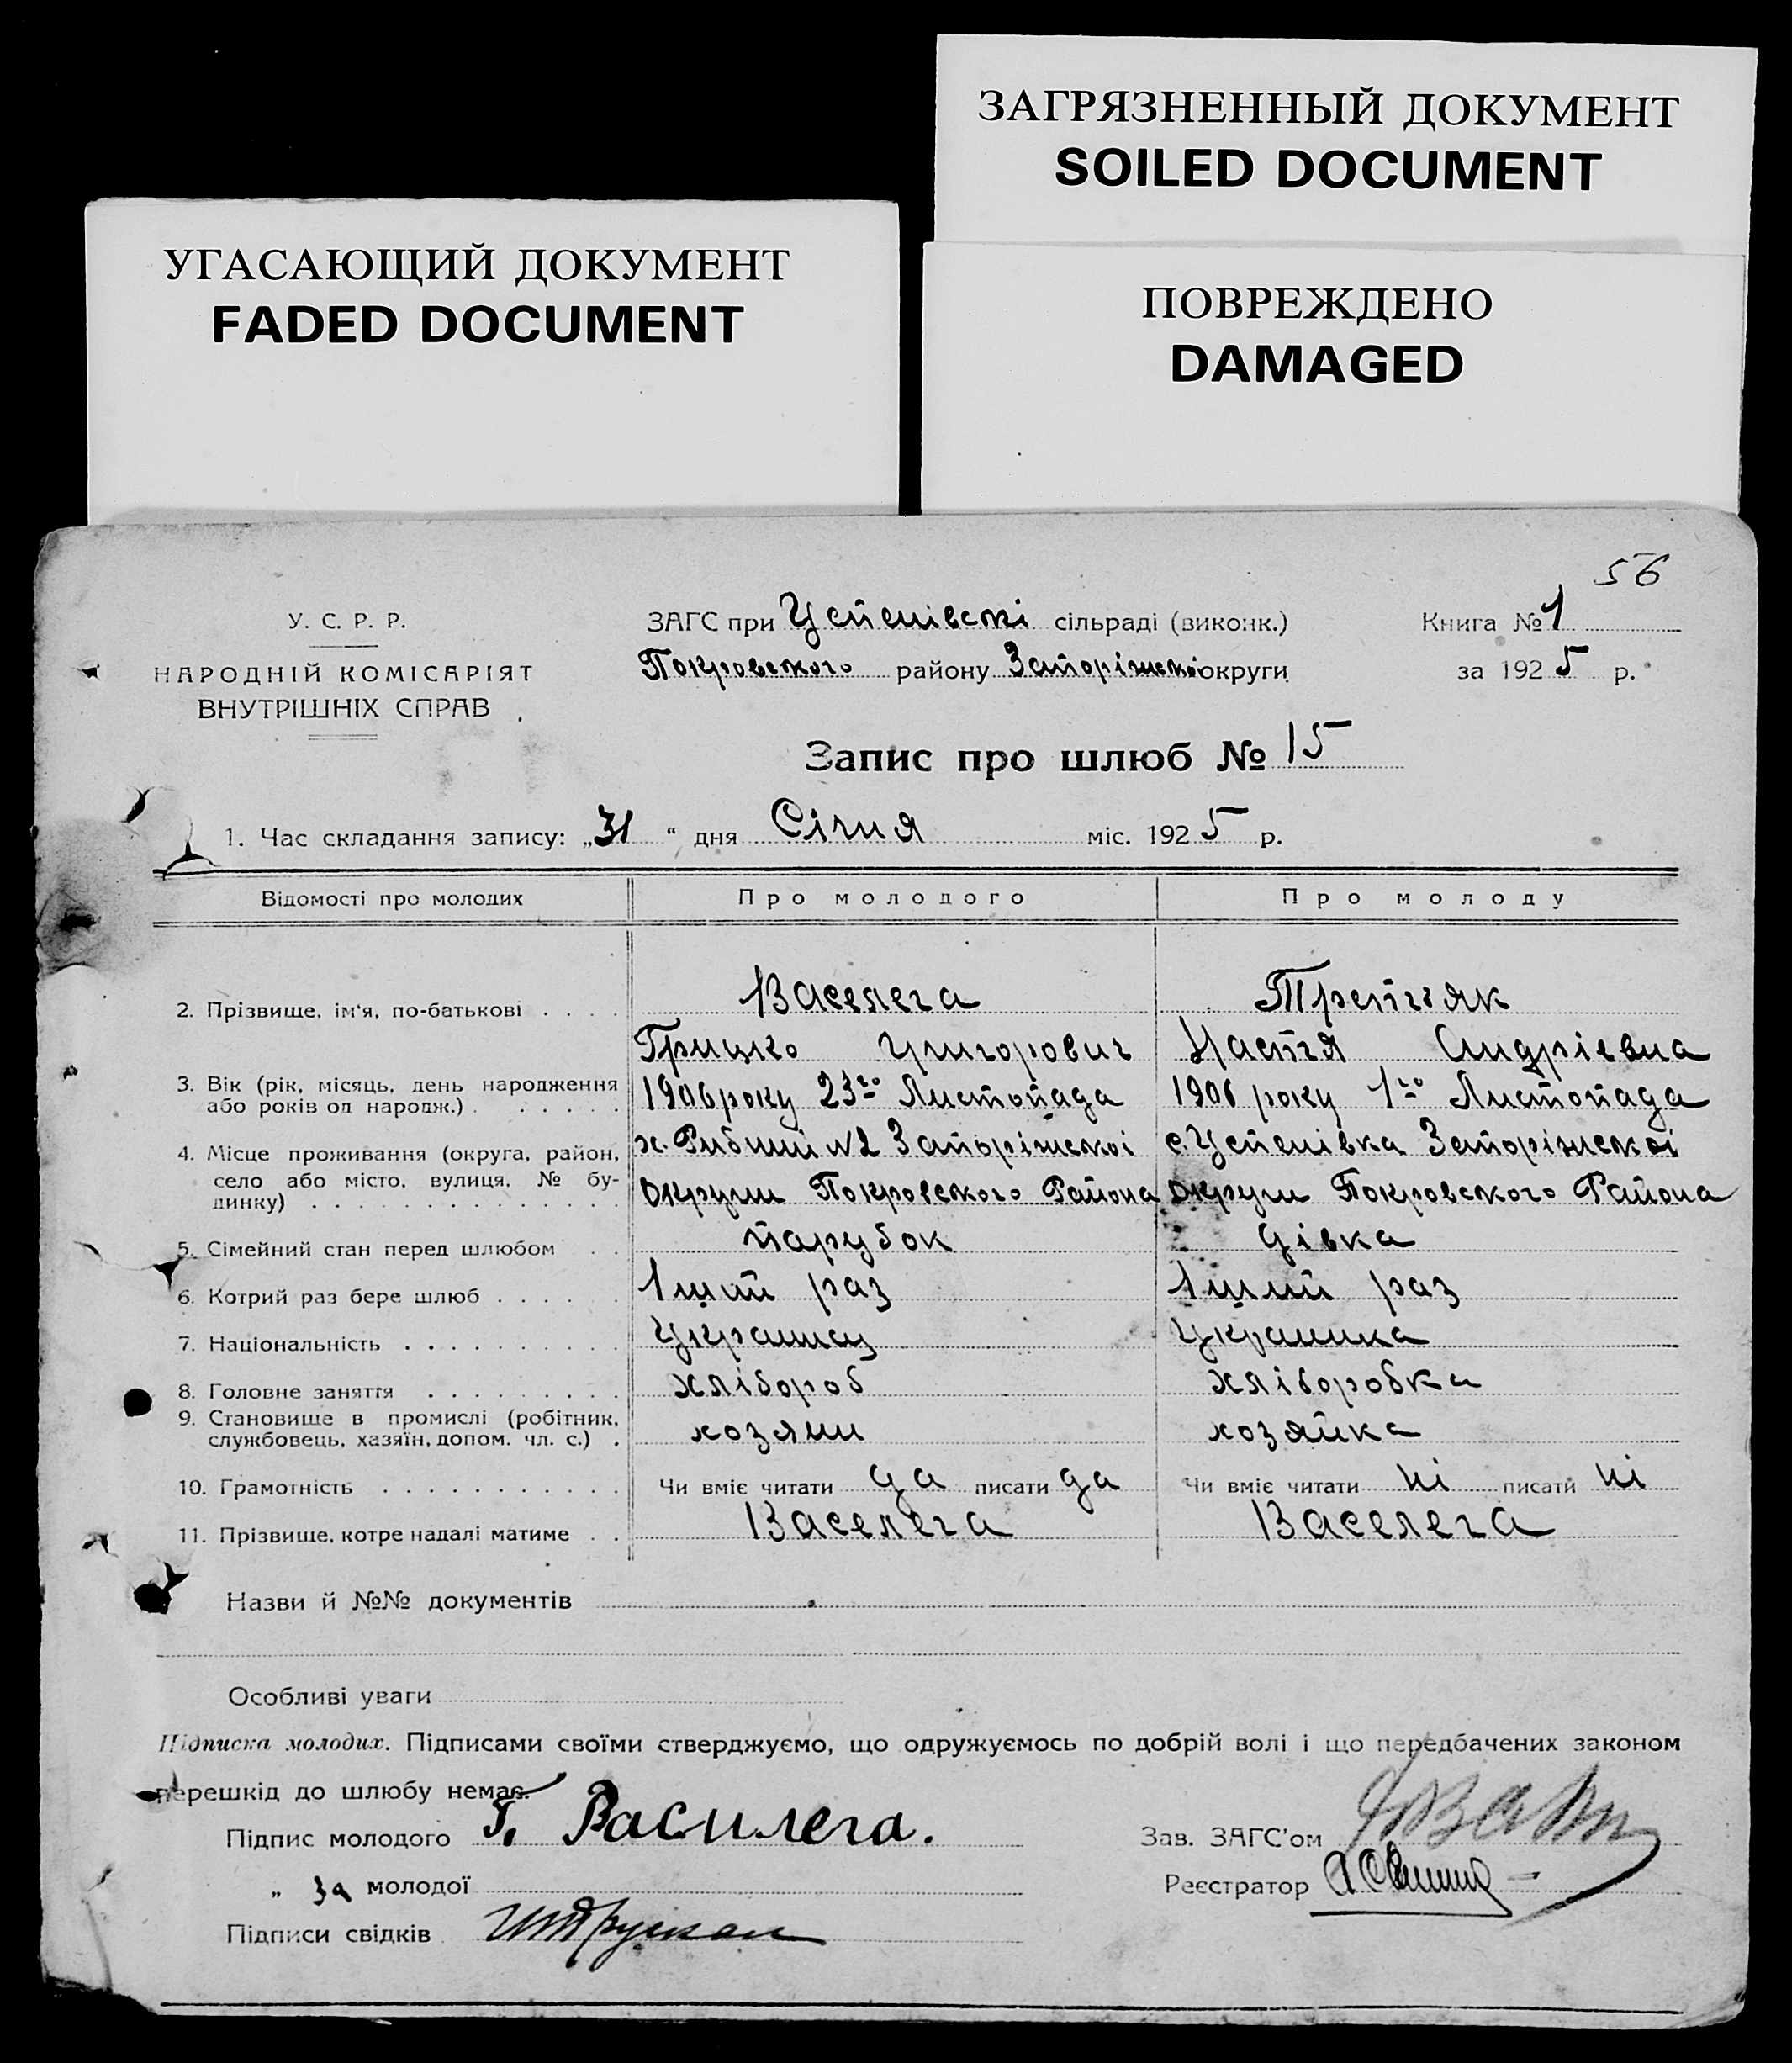 ЗАГРЯЗНЕННЫЙ ДОКУМЕНТ
SOILED DOCUMENT
УГАСАЮЩИЙ ДОКУМЕНТ
FADED DOCUMENT
ПОВРЕЖДЕНО
DAMAGED
56
У. С. Р. Р.
НАРОДНІЙ КОМІСАРІЯТ
ВНУТРІШНІХ СПРАВ
ЗАГС при Успенівскі сільраді (виконк.)
Покровского району Запоріжскоі округи
Книга № 1
за 1925 р.
Запис про шлюб № 15
1. Час складання запису: „31“ дня Січня міс. 1925 р.
Відомості про молодих Про молодого Про молоду
2. Прізвище, ім'я, по-батькові . . . . Васелега Третьяк
Грицко Григорович Настя Андріевна
3. Вік (рік, місяць, день народження або років од народж.) . . . . . . 1906 року 23го Листопада 1906 року 1го Листопада
4. Місце проживання (округа, район, село або місто, вулиця, № будинку) х. Рибний №2 Запоріжскоі с. Успенівка Запоріжскоі
Округи Покровского Района Округи Покровского Района
5. Сімейний стан перед шлюбом . . парубок дівка
6. Котрий раз бере шлюб . . . . . . 1ший раз 1ший раз
7. Національність . . . . . . . . . . Украинец Украинка
8. Головне заняття . . . . . . . . . хлібороб хліборобка
9. Становище в промислі (робітник, службовець, хазяїн, допом. чл. с.) . хозяин хозяйка
10. Грамотність . . . . . . . . . . . Чи вміє читати да писати да Чи вміє читати ні писати ні
11. Прізвище, котре надалі матиме . . Васелега Васелега
Назви й №№ документів
Особливі уваги
Підписка молодих. Підписами своїми стверджуємо, що одружуємось по добрій волі і що передбачених законом
перешкід до шлюбу немає.
Підпис молодого Г. Василега.
Зав. ЗАГС'ом
„ За молодої
Реєстратор
Підписи свідків